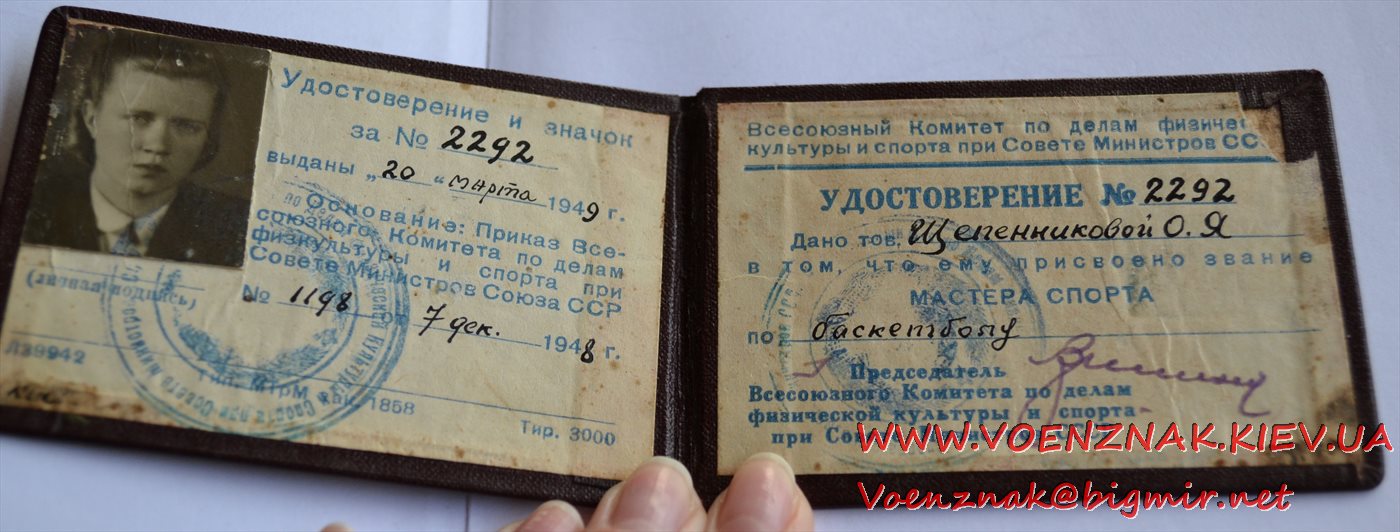 Удостоверение и значок
за № 2292
выданы „20" марта 1949 г.
Основание: Приказ Все-
союзного Комитета по делам
физкультуры и спорта при
Совете Министров Союза ССР
№ 1198 от 7 дек. 1948 г.
(личная подпись)
Л39942
Тип. МТрМ Зак. 1858
Тир. 3000
Всесоюзный Комитет по делам физичес
культуры и спорта при Совете Министров СС
УДОСТОВЕРЕНИЕ № 2292
Дано тов. Щепенниковой О. Я
в том, что ему присвоено звание
МАСТЕРА СПОРТА
по баскетболу
Председатель
Всесоюзного Комитета по делам
физической культуры и спорта
при Сов
WWW.VOENZNAK.KIEV.UA
Voenznak@bigmir.net